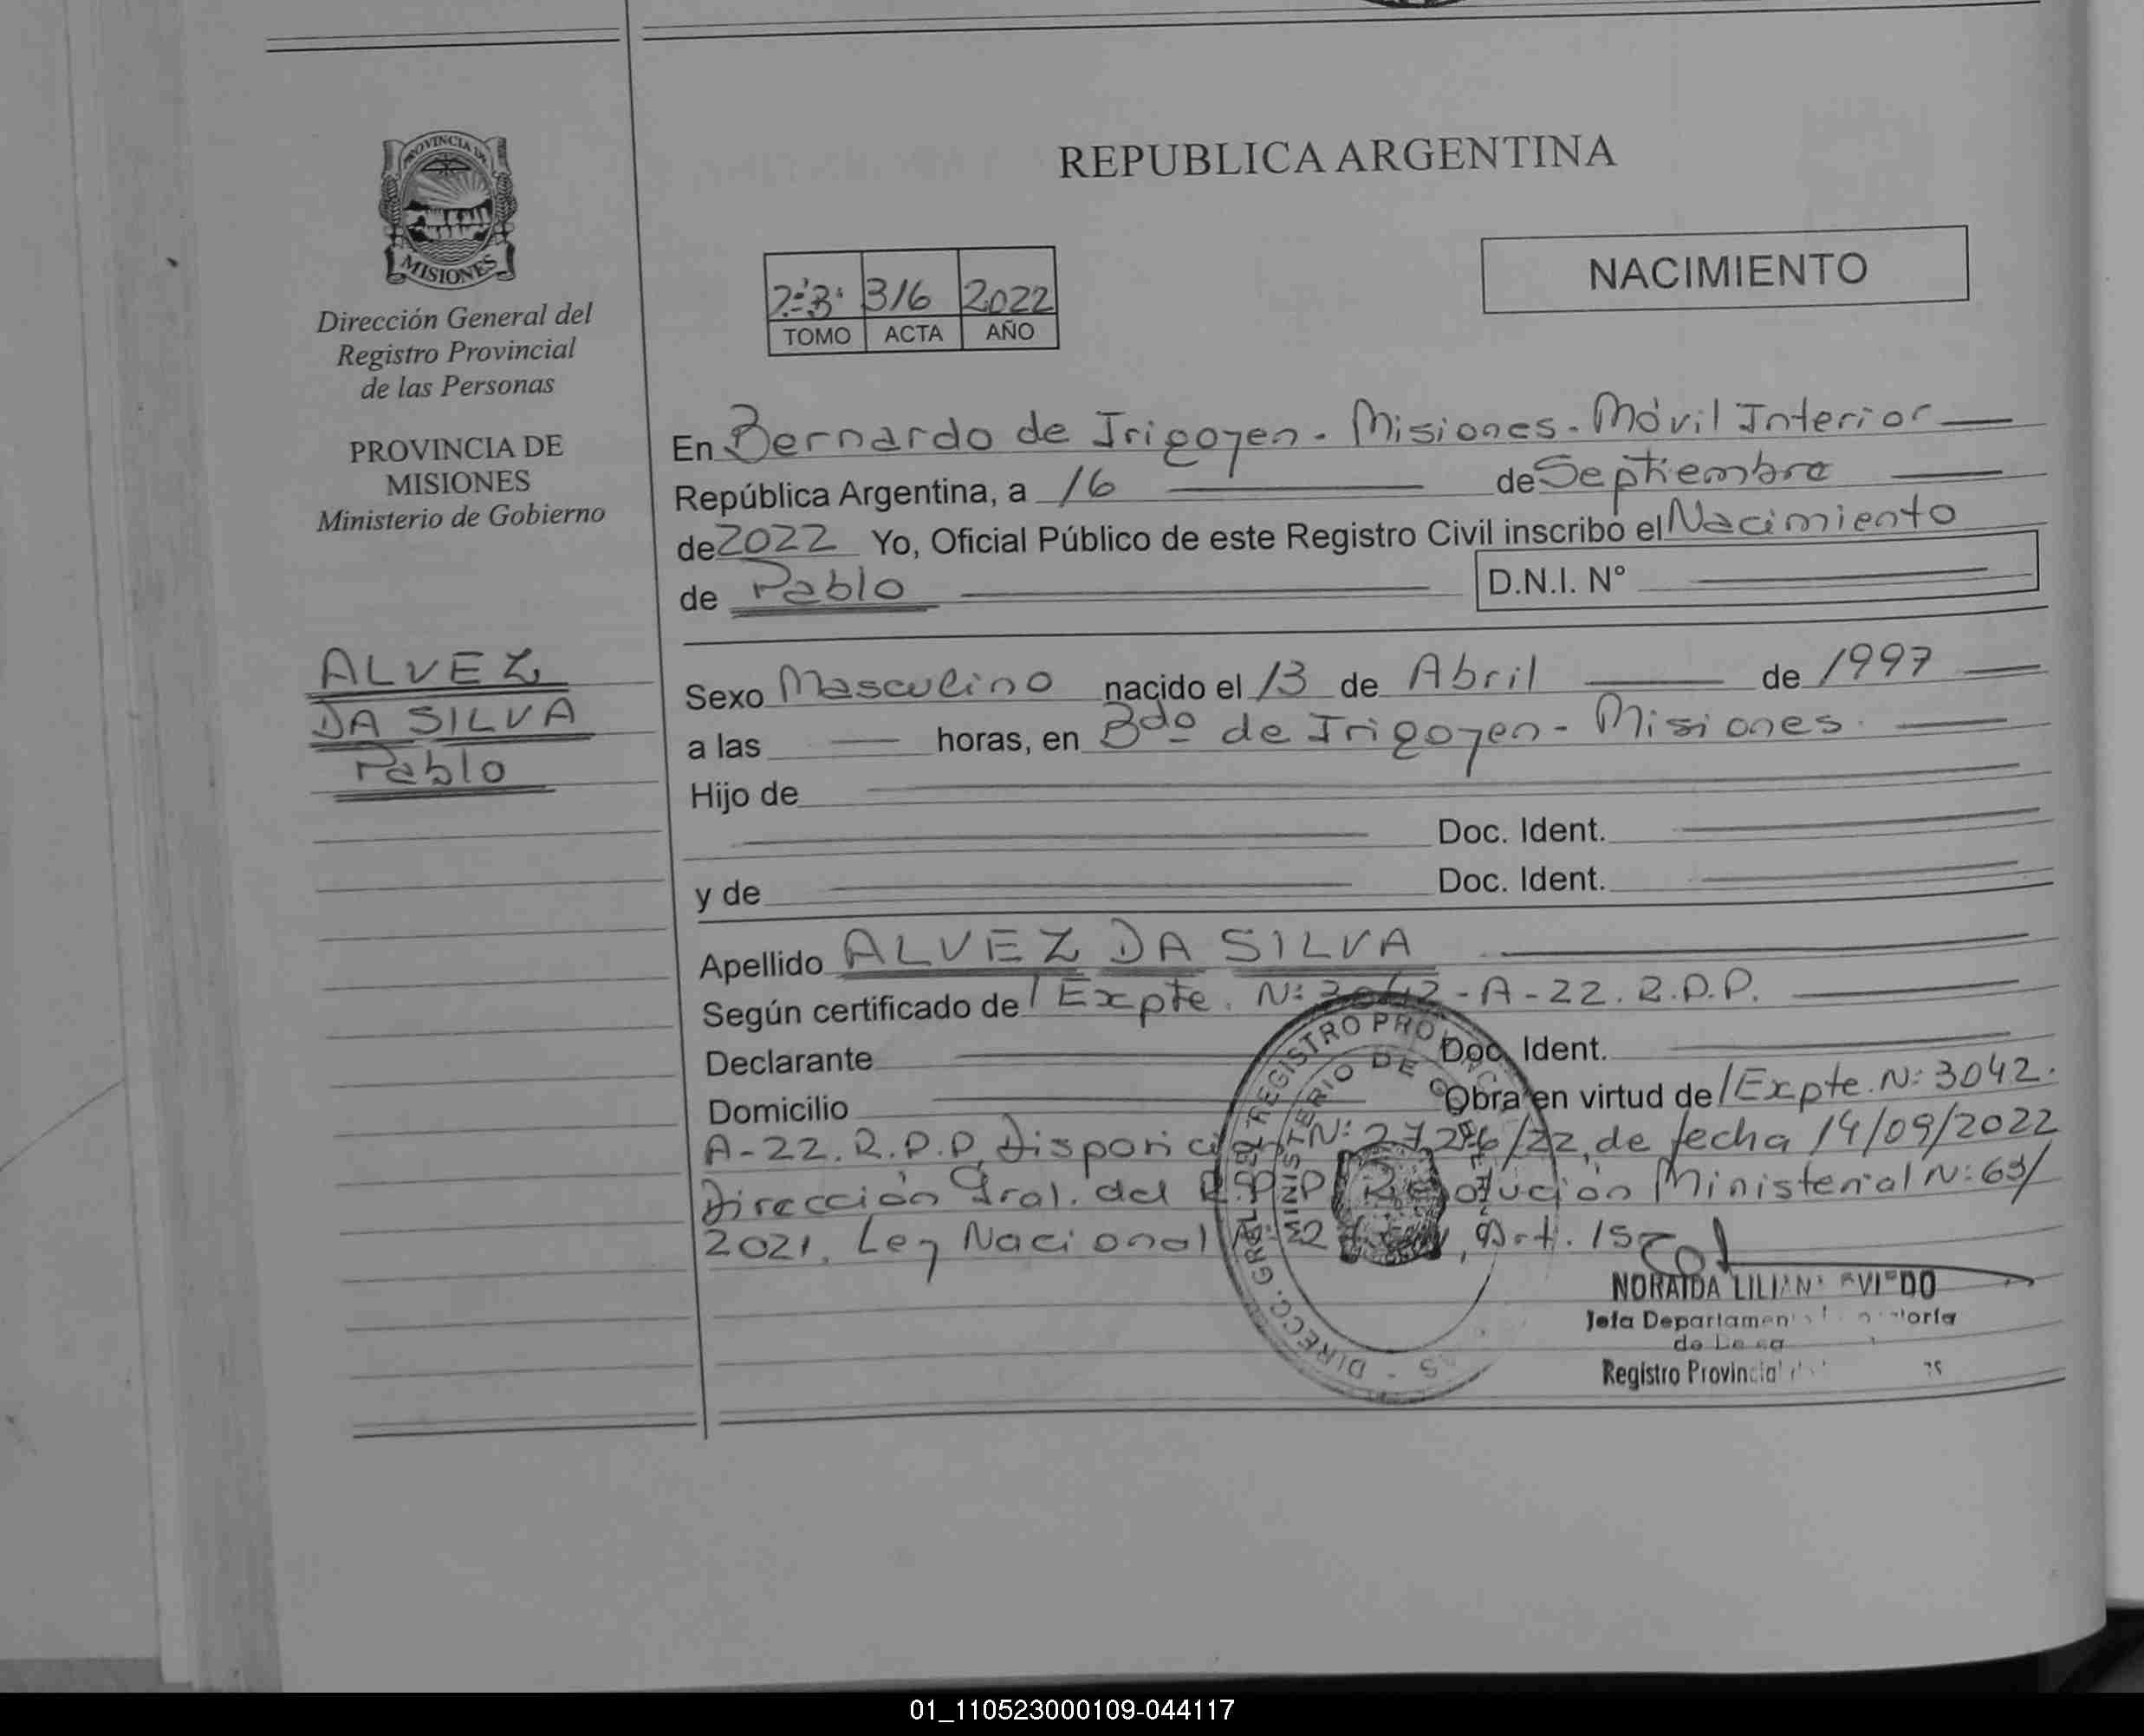 PROVINCIA DE
MISIONES
Dirección General del
Registro Provincial
de las Personas
PROVINCIA DE
MISIONES
Ministerio de Gobierno
ALVEZ
DA SILVA
Pablo
REPUBLICA ARGENTINA
316 2022
TOMO ACTA AÑO
NACIMIENTO
En Bernardo de Irigoyen - Misiones - Móvil Interior
República Argentina, a 16 de Septiembre
de 2022 Yo, Oficial Público de este Registro Civil inscribo el Nacimiento
de Pablo D.N.I. N°
Sexo Masculino nacido el 13 de Abril de 1997
a las horas, en Bdo de Irigoyen - Misiones.
Hijo de
Doc. Ident.
y de Doc. Ident.
Apellido ALVEZ DA SILVA
Según certificado de / Expte. N: 3042 - A - 22. R.P.P.
Declarante Doc. Ident.
Domicilio Obra en virtud de / Expte. N: 3042.
A-22. R.P.P, Disposición N: /22, de fecha 14/09/2022
Dirección Gral. del R.P.P. Resolución Ministerial N:
2021. Ley Nacional Art.
DIRECC. GRAL. DEL REGISTRO
MINISTERIO DE
NORAIDA
Jefa
Registro Provincial
01_110523000109-044117